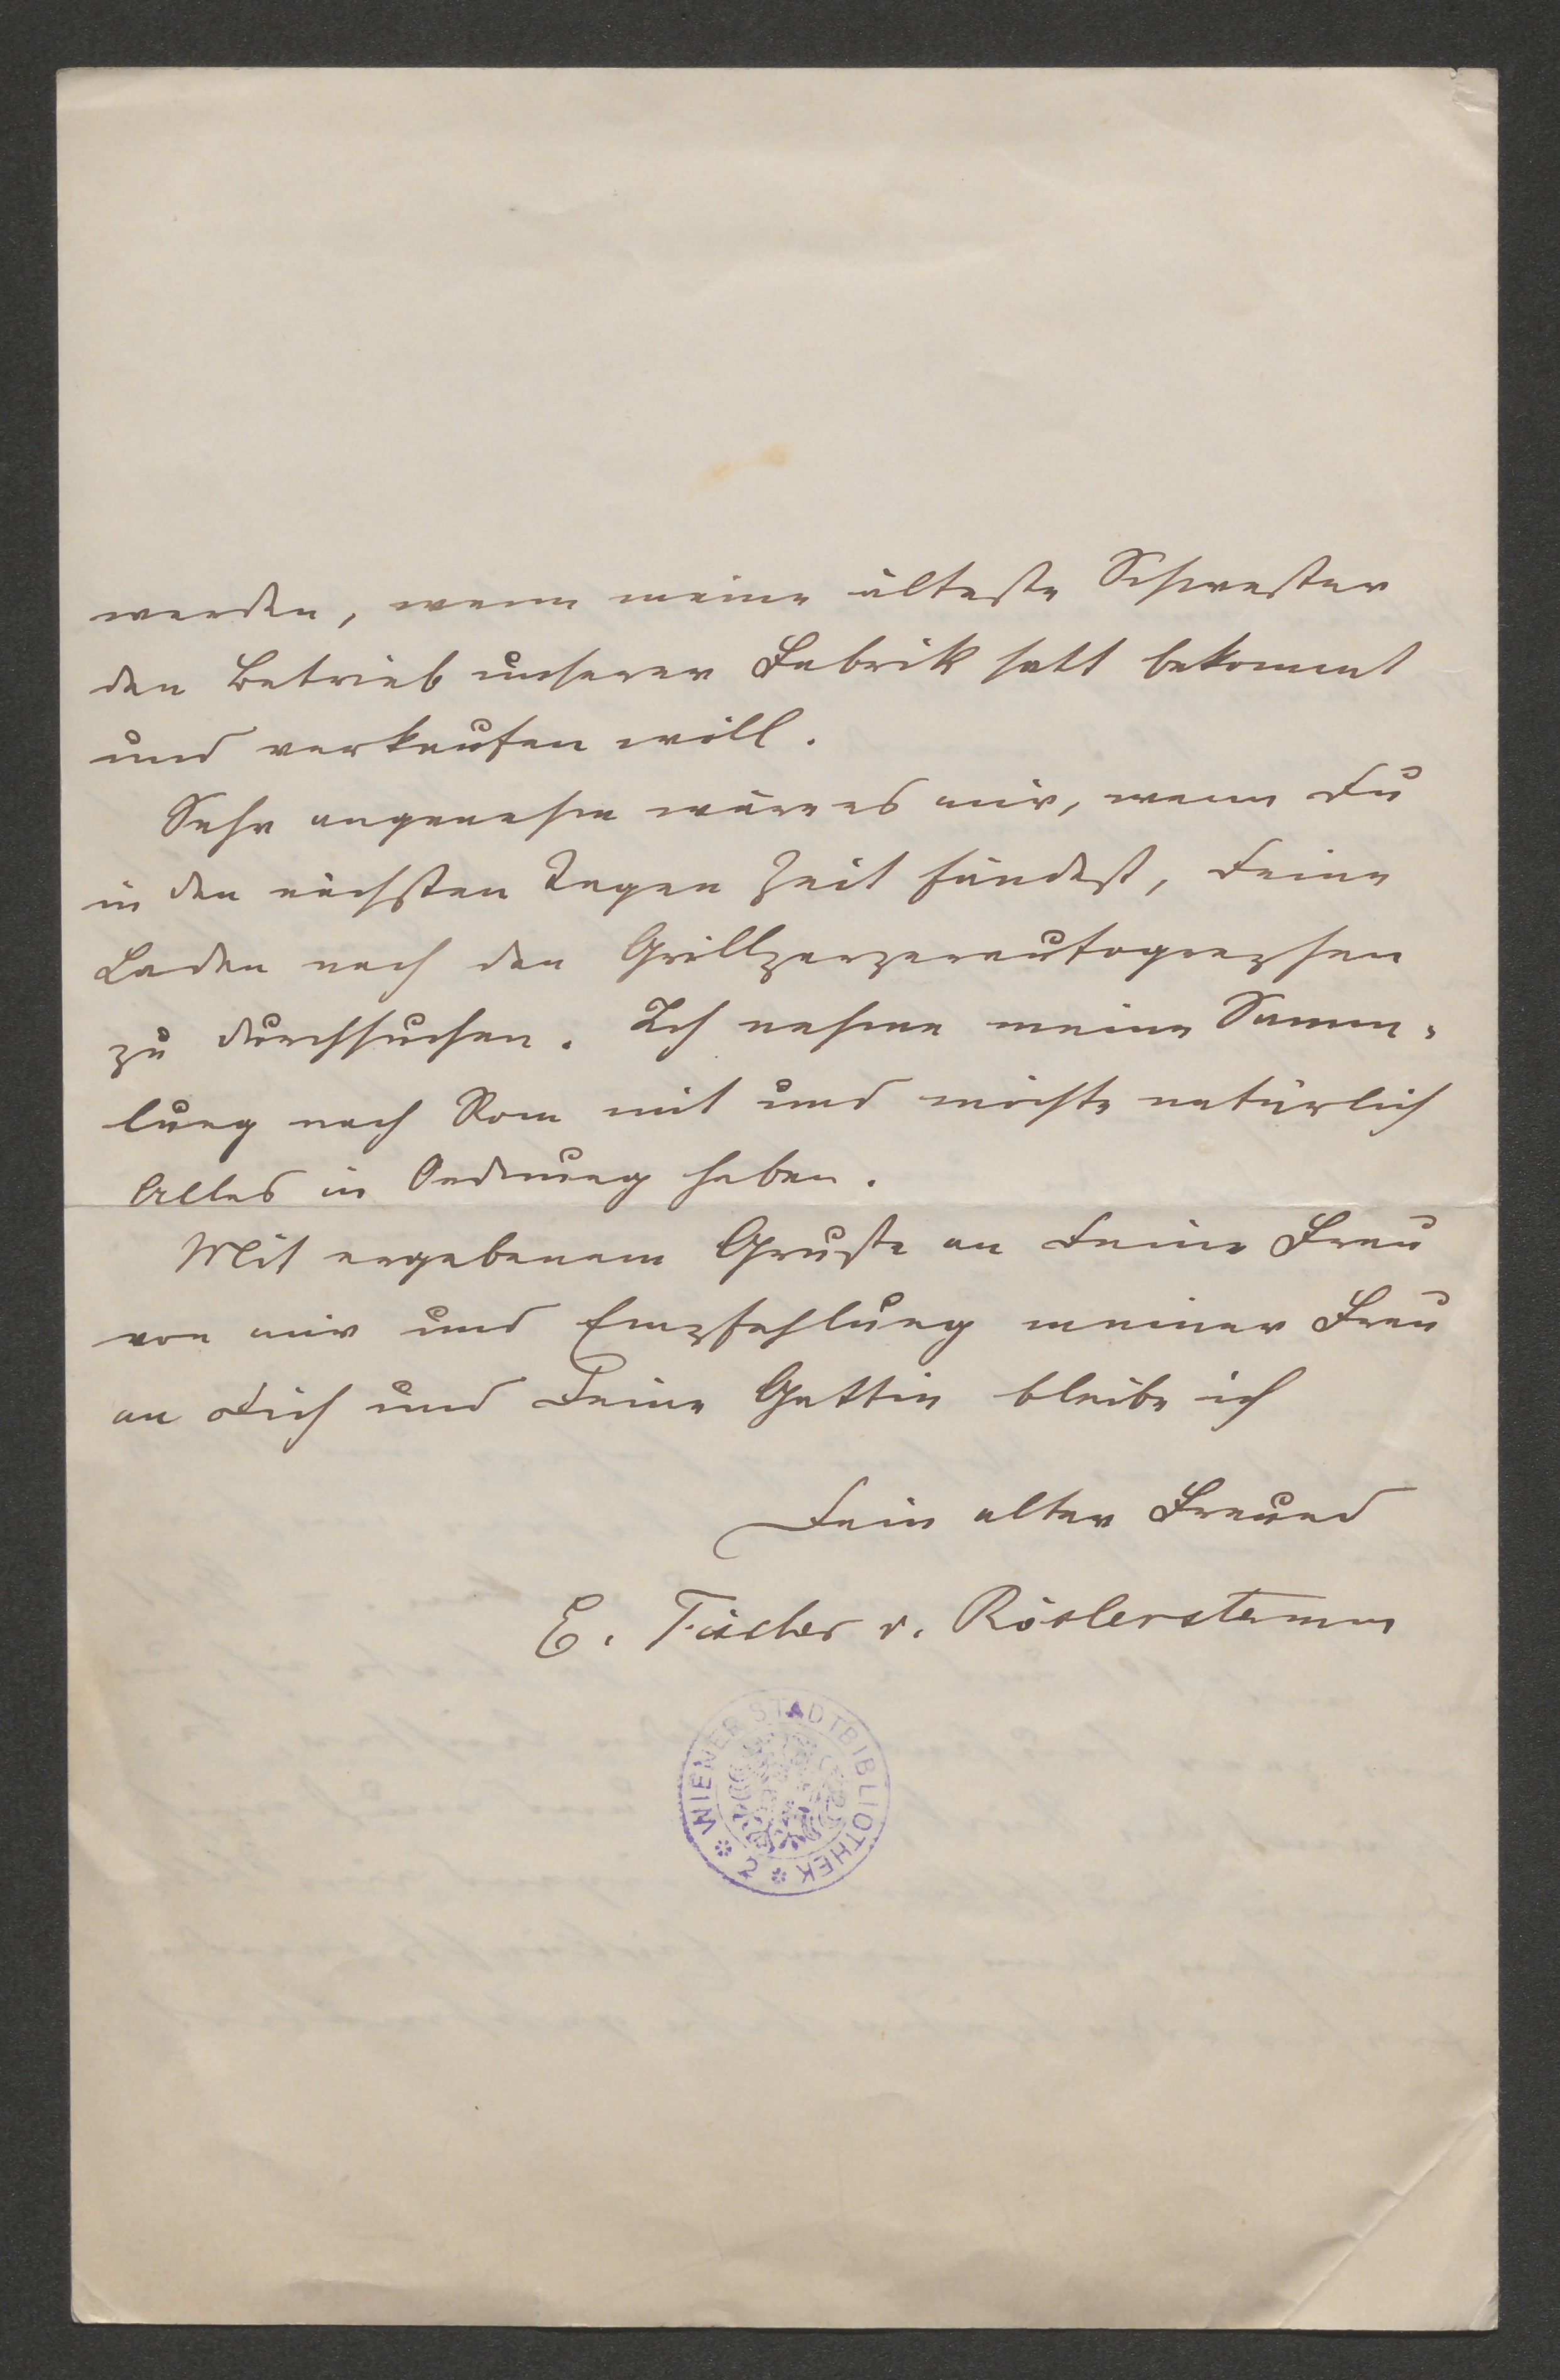 werden, wenn meine älteste Schwester
den Betrieb unserer Fabrik satt bekommt
und verkaufen will.
Sehr angenehm wäre es mir, wenn Du
in den nächsten Tagen Zeit fändest, Deine
Laden nach den Grillparzerautographen
zu durchsuchen. Ich nehme meine Samm-
lung nach Rom mit und möchte natürlich
Alles in Ordnung haben.
Mit ergebenem Gruße an Deine Frau
von mir und Empfehlung meiner Frau
an Dich und Deine Gattin bleibe ich
Dein alter Freund
E. Fischer v. Röslerstamm
WIENER STADTBIBLIOTHEK * 2 *